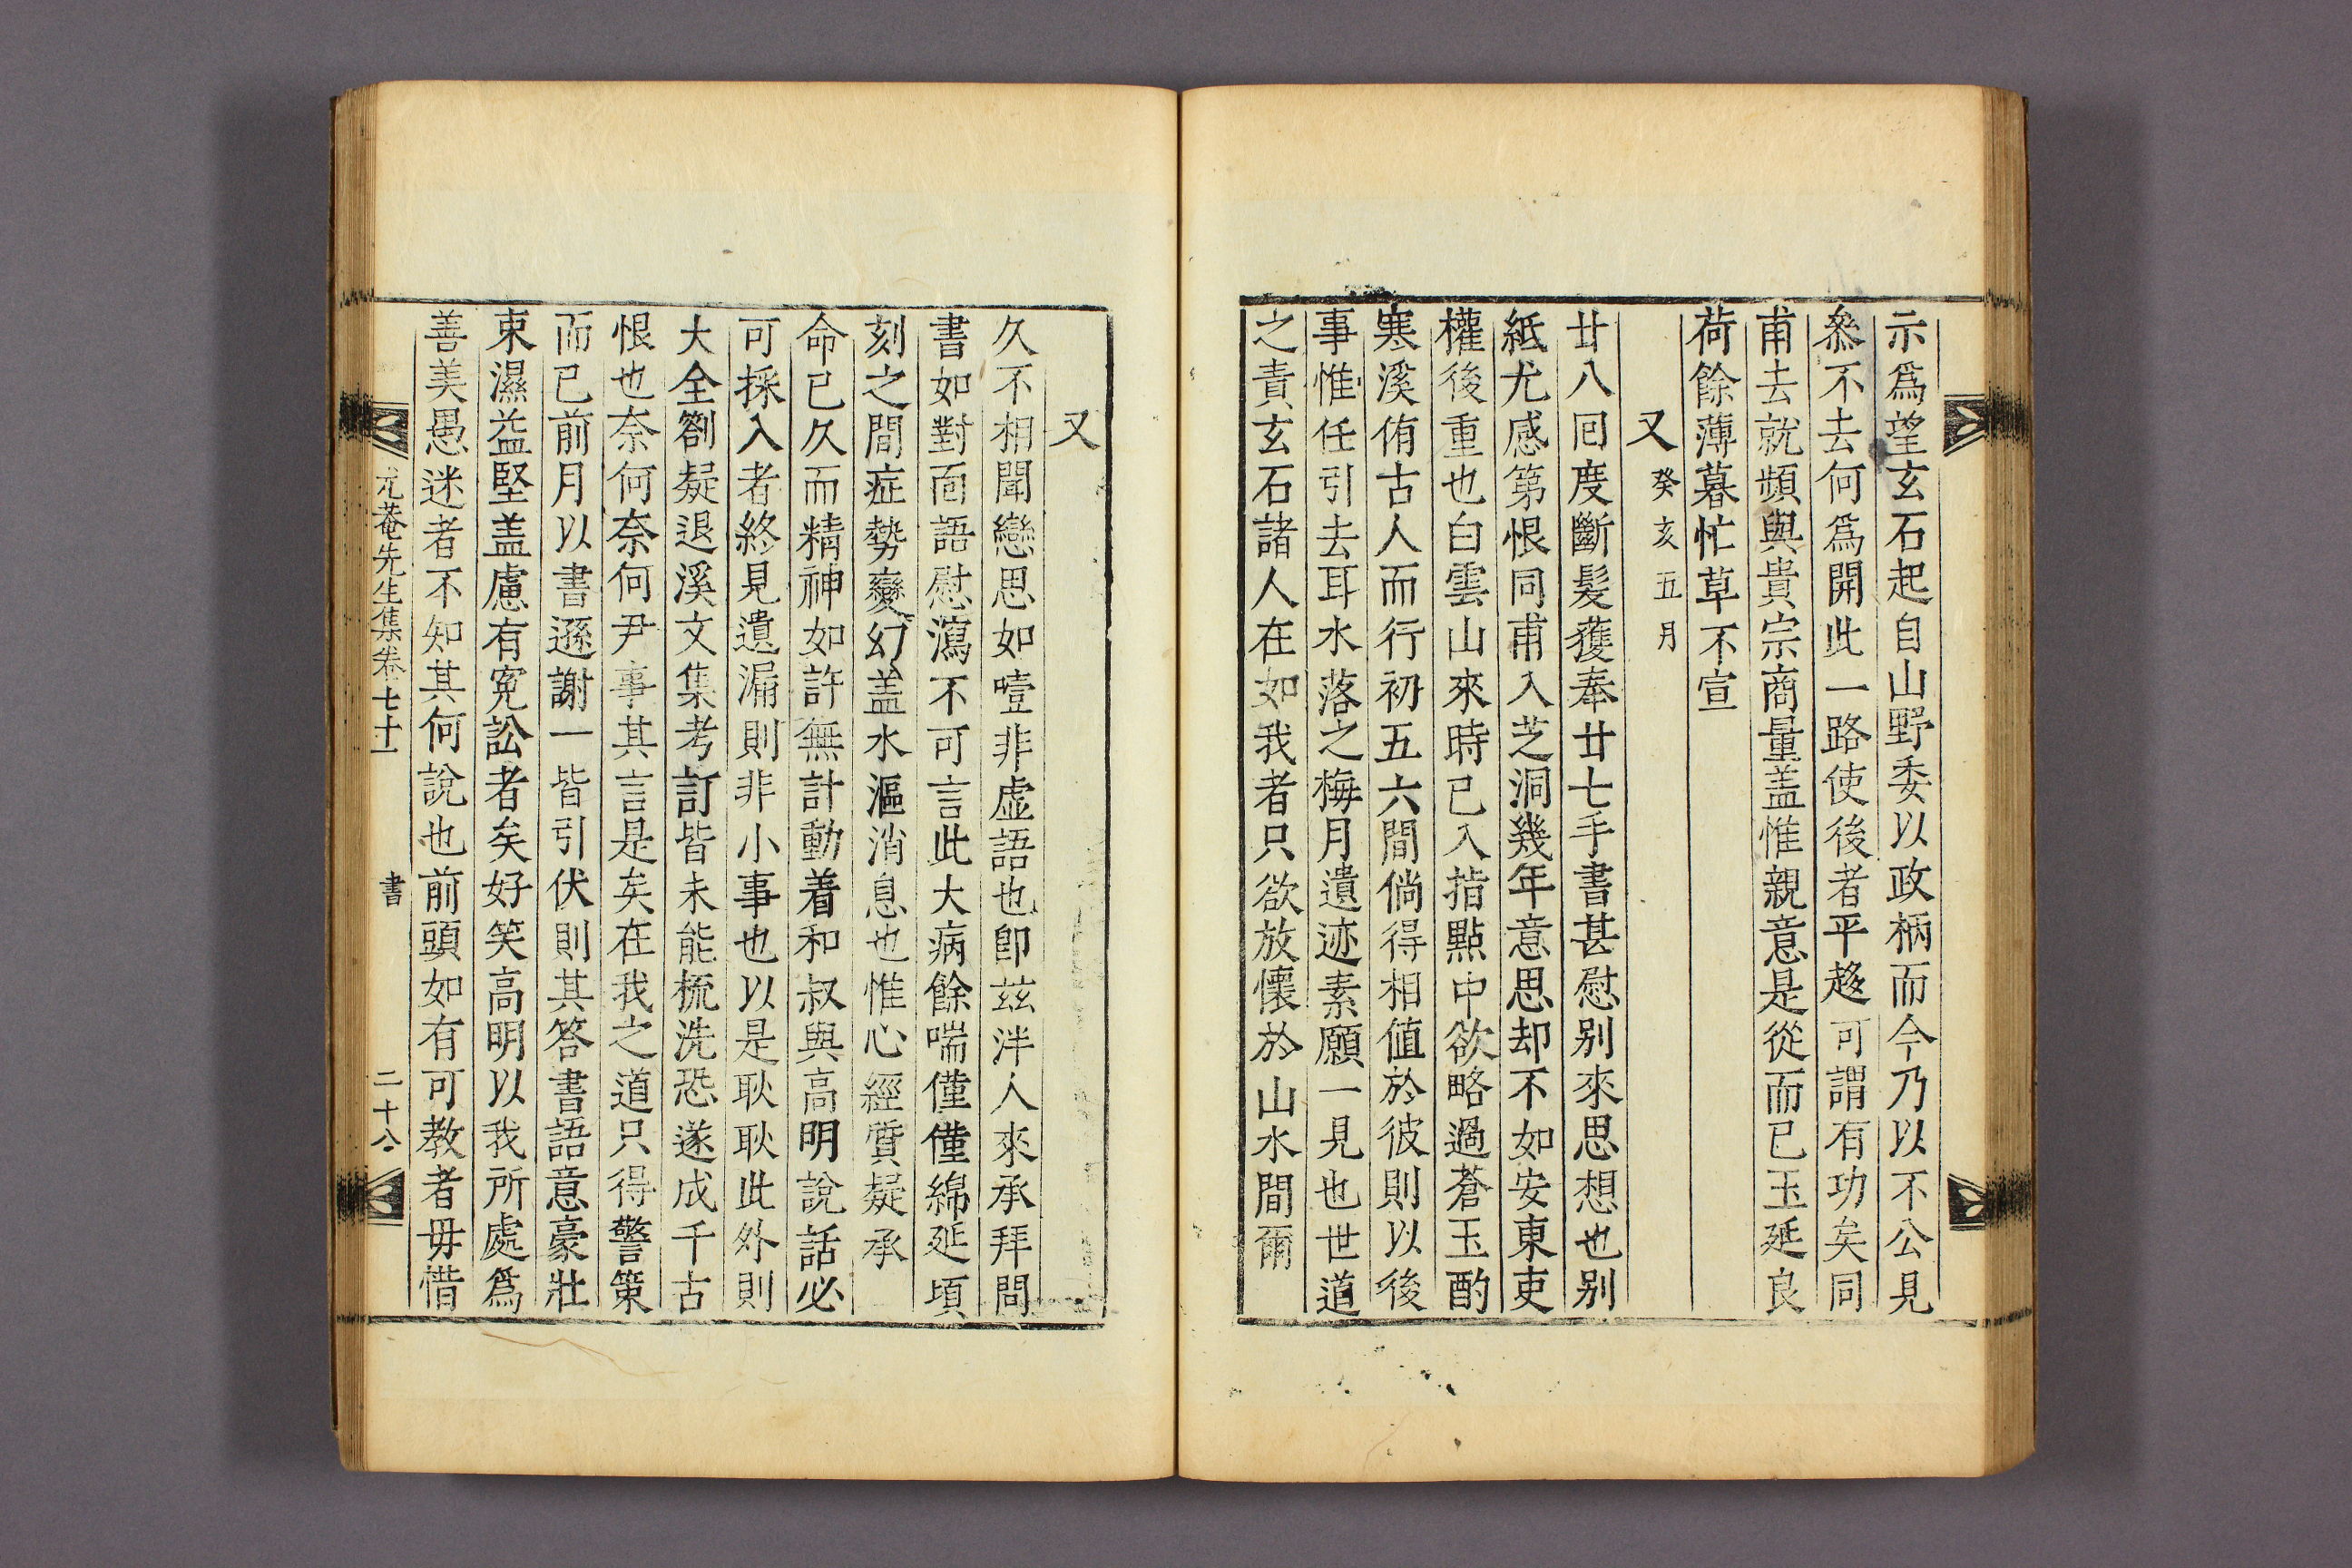 示爲望玄石起自山野委以政柄而今乃以不公見
叅不去何爲開此一路使後者平趍可謂有功矣同
甫去就頻與貴宗商量盖惟親意是從而已玉延良
荷餘薄暮忙草不宣
又 癸亥五月
廿八回度斷髮獲奉廿七手書甚慰别來思想也别
紙尤感第恨同甫入芝洞幾年意思却不如安東吏
權後重也白雲山來時已入指點中欲略過蒼玉酌
寒溪侑古人而行初五六間倘得相値於彼則以後
事惟任引去耳水落之梅月遺迹素願一見也世道
之責玄石諸人在如我者只欲放懷於山水間爾
又
久不相聞戀思如噎非虚語也卽玆泮人來承拜問
書如對面語慰瀉不可言此大病餘喘僅僅綿延頃
刻之間症勢變幻盖水漚消息也惟心經質疑承
命已久而精神如許無計動着和叔與高明說話必
可採入者終見遺漏則非小事也以是耿耿此外則
大全劄疑退溪文集考訂皆未能梳洗恐遂成千古
恨也奈何奈何尹事其言是矣在我之道只得警策
而已前月以書遜謝一皆引伏則其答書語意豪壯
束濕益堅盖慮有寃訟者矣好笑高明以我所處爲
善美愚迷者不知其何說也前頭如有可教者毋惜
尤菴先生集卷七十一 書 二十八